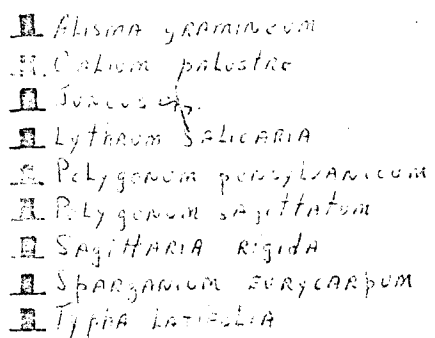 Alisma gramineum
Galium palustre
Juncus sp.
Lythrum salicaria
Polygonum pensylvanicum
Polygonum sagittatum
Sagittaria rigida
Sparganium eurycarpum
Typha latifolia